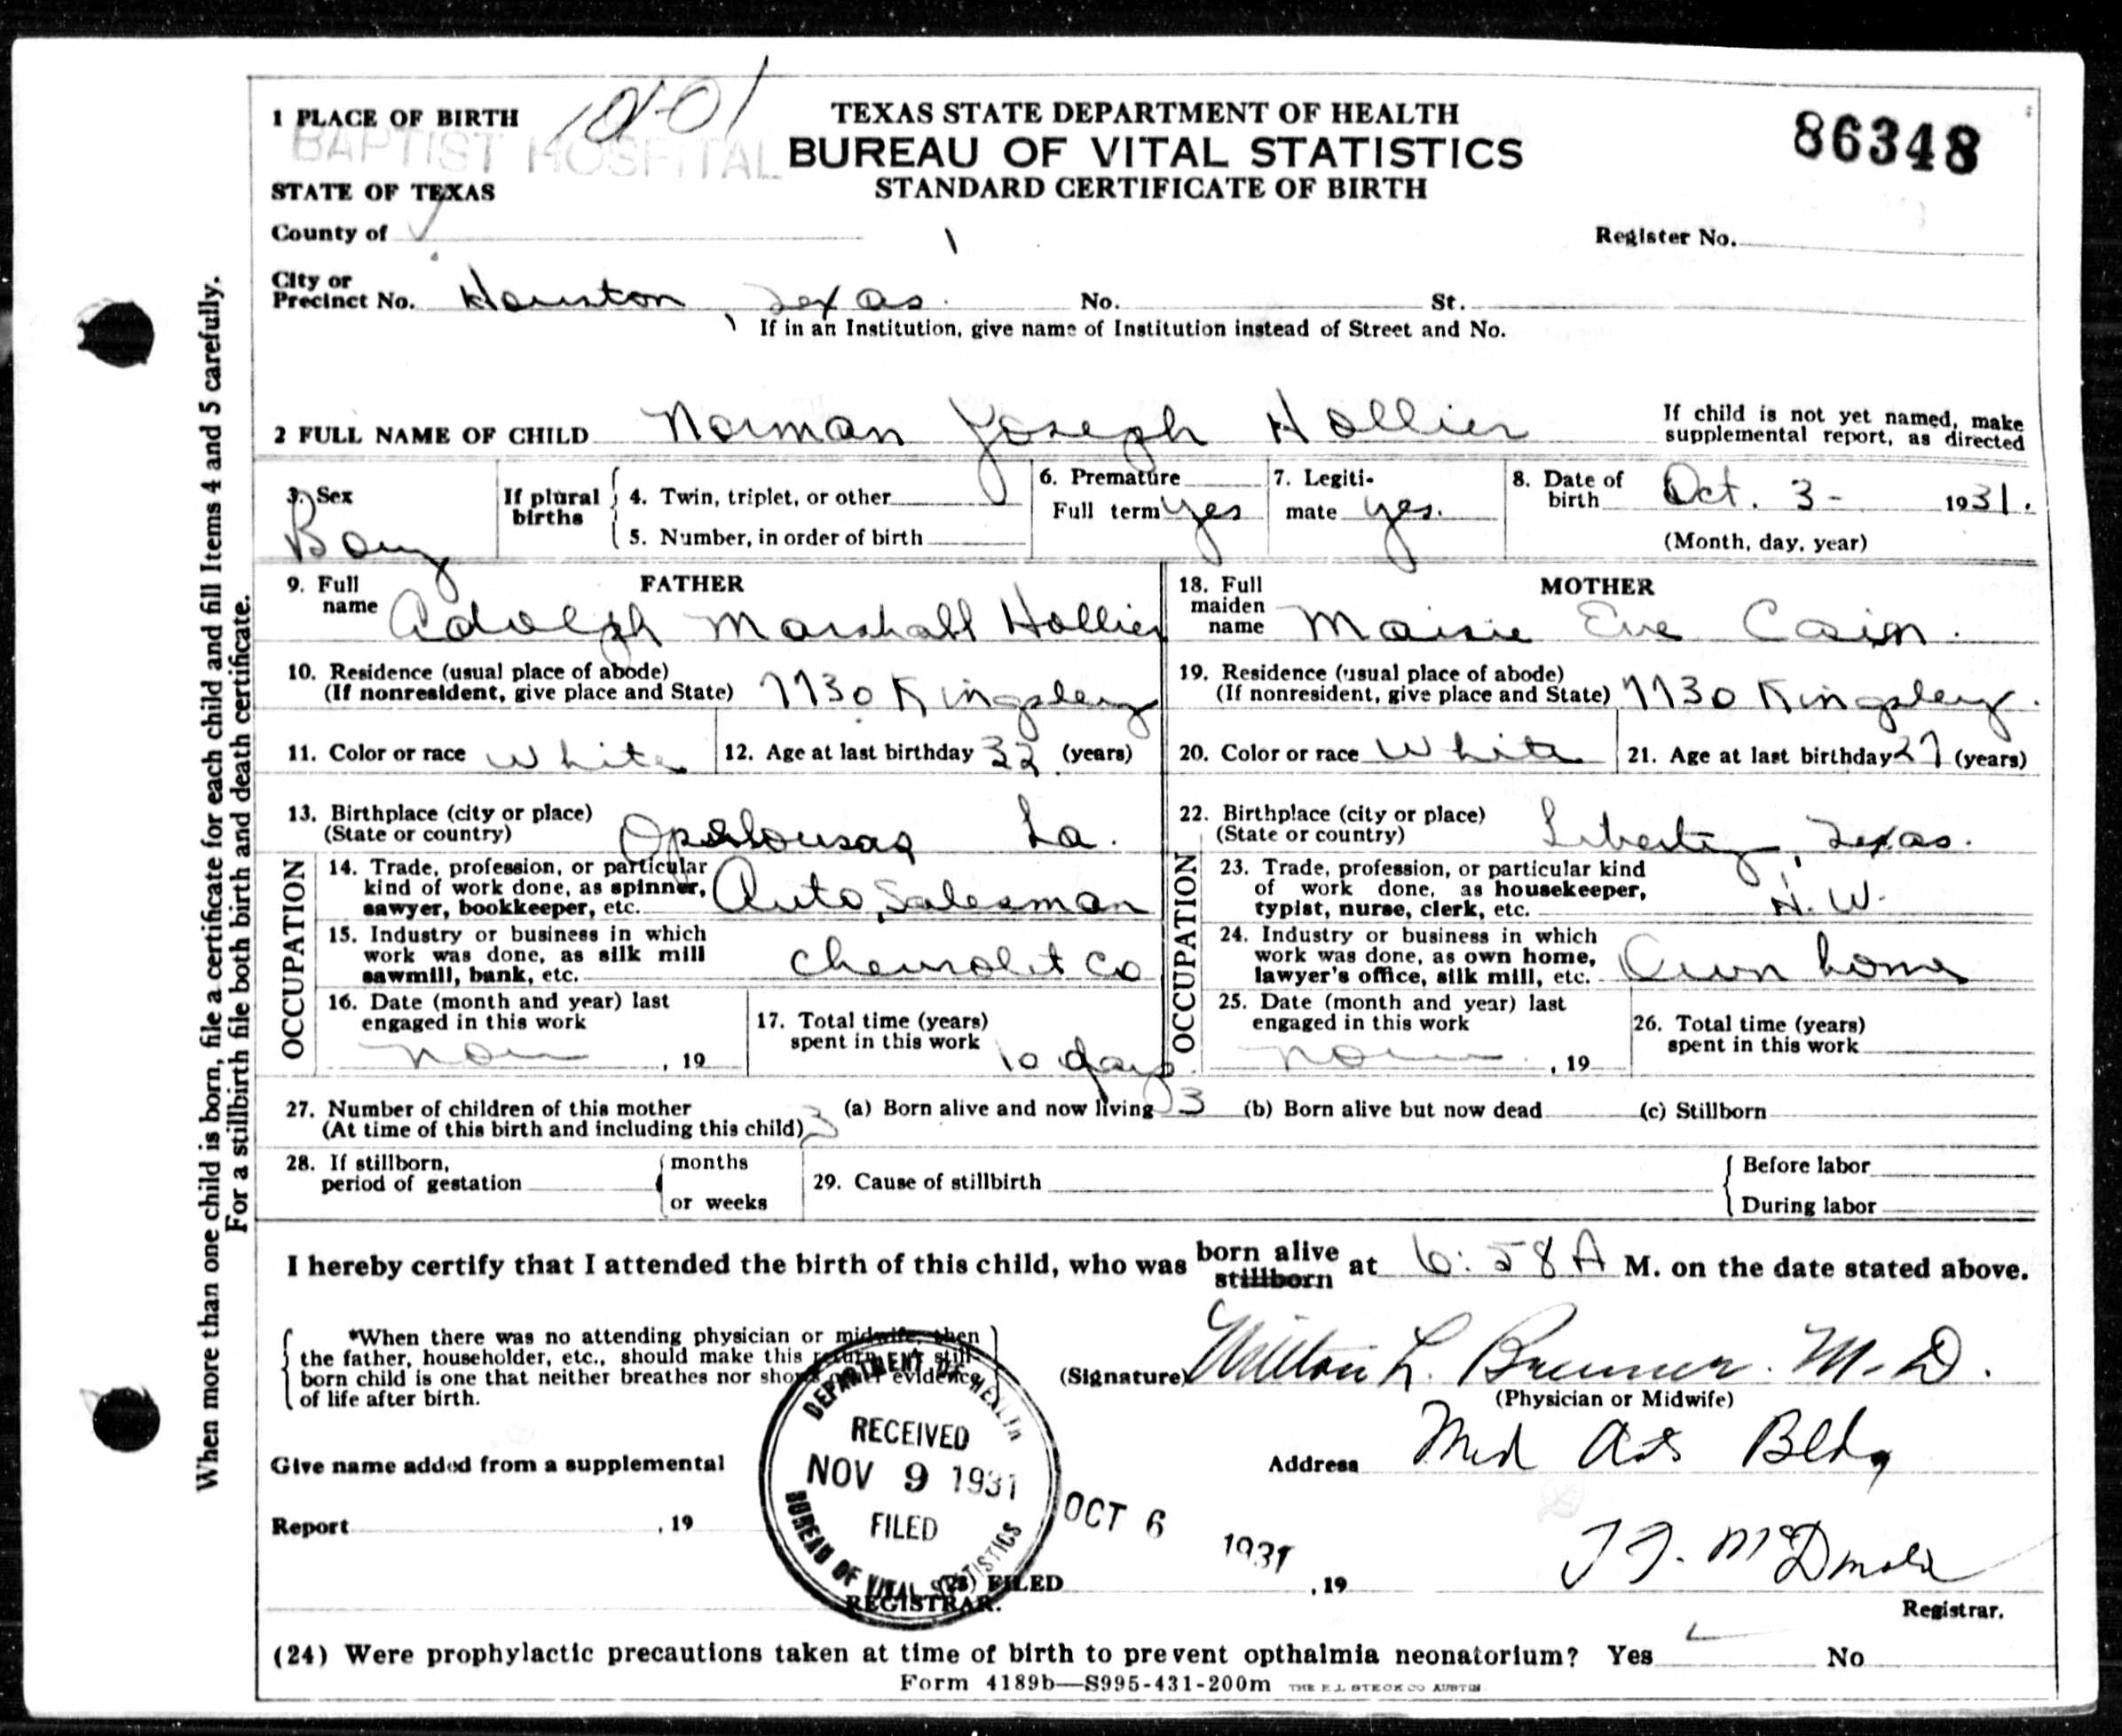 1 PLACE OF BIRTH
BAPTIST HOSPITAL
TEXAS STATE DEPARTMENT OF HEALTH
BUREAU OF VITAL STATISTICS
STANDARD CERTIFICATE OF BIRTH
86348
STATE OF TEXAS
County of
Register No.
City or Precinct No. Houston, Texas. No. St.
If in an Institution, give name of Institution instead of Street and No.
2 FULL NAME OF CHILD Norman Joseph Hollier
If child is not yet named, make
supplemental report, as directed
3. Sex Boy
If plural births
4. Twin, triplet, or other
5. Number, in order of birth
6. Premature
Full term yes
7. Legiti-
mate yes.
8. Date of birth Oct. 3 - 1931.
(Month, day, year)
FATHER
9. Full name Adolph Marshall Hollier
10. Residence (usual place of abode)
(If nonresident, give place and State) 7730 Kingsley
11. Color or race White
12. Age at last birthday 32 (years)
13. Birthplace (city or place)
(State or country) Opelousas La.
OCCUPATION
14. Trade, profession, or particular
kind of work done, as spinner,
sawyer, bookkeeper, etc. Auto Salesman
15. Industry or business in which
work was done, as silk mill
sawmill, bank, etc. Chevrolet Co
16. Date (month and year) last
engaged in this work
, 19
17. Total time (years)
spent in this work 10 days
MOTHER
18. Full maiden name Maisie Eve Cain.
19. Residence (usual place of abode)
(If nonresident, give place and State) 7730 Kingsley.
20. Color or race White
21. Age at last birthday 27 (years)
22. Birthplace (city or place)
(State or country) Liberty, Texas.
OCCUPATION
23. Trade, profession, or particular kind
of work done, as housekeeper,
typist, nurse, clerk, etc. H. W.
24. Industry or business in which
work was done, as own home,
lawyer's office, silk mill, etc. Own home
25. Date (month and year) last
engaged in this work
, 19
26. Total time (years)
spent in this work
27. Number of children of this mother
(At time of this birth and including this child) 3
(a) Born alive and now living 3 (b) Born alive but now dead (c) Stillborn
28. If stillborn,
period of gestation
months
or weeks
29. Cause of stillbirth
Before labor
During labor
I hereby certify that I attended the birth of this child, who was born alive stillborn at 6:58 A M. on the date stated above.
*When there was no attending physician or midwife, then
the father, householder, etc., should make this return. still-
born child is one that neither breathes nor shows other evidence
of life after birth.
(Signature) Milton L. Brenner. M.D.
(Physician or Midwife)
Address Med Arts Bldg
Give name added from a supplemental
Report , 19
DEPARTMENT OF HEALTH
RECEIVED
NOV 9 1931
FILED
BUREAU OF VITAL STATISTICS
OCT 6 1931
(28) FILED , 19
REGISTRAR.
Registrar.
(24) Were prophylactic precautions taken at time of birth to prevent opthalmia neonatorium? Yes No
Form 4189b—S995-431-200m THE E.L. STECK CO AUSTIN
When more than one child is born, file a certificate for each child and fill Items 4 and 5 carefully.
For a stillbirth file both birth and death certificate.